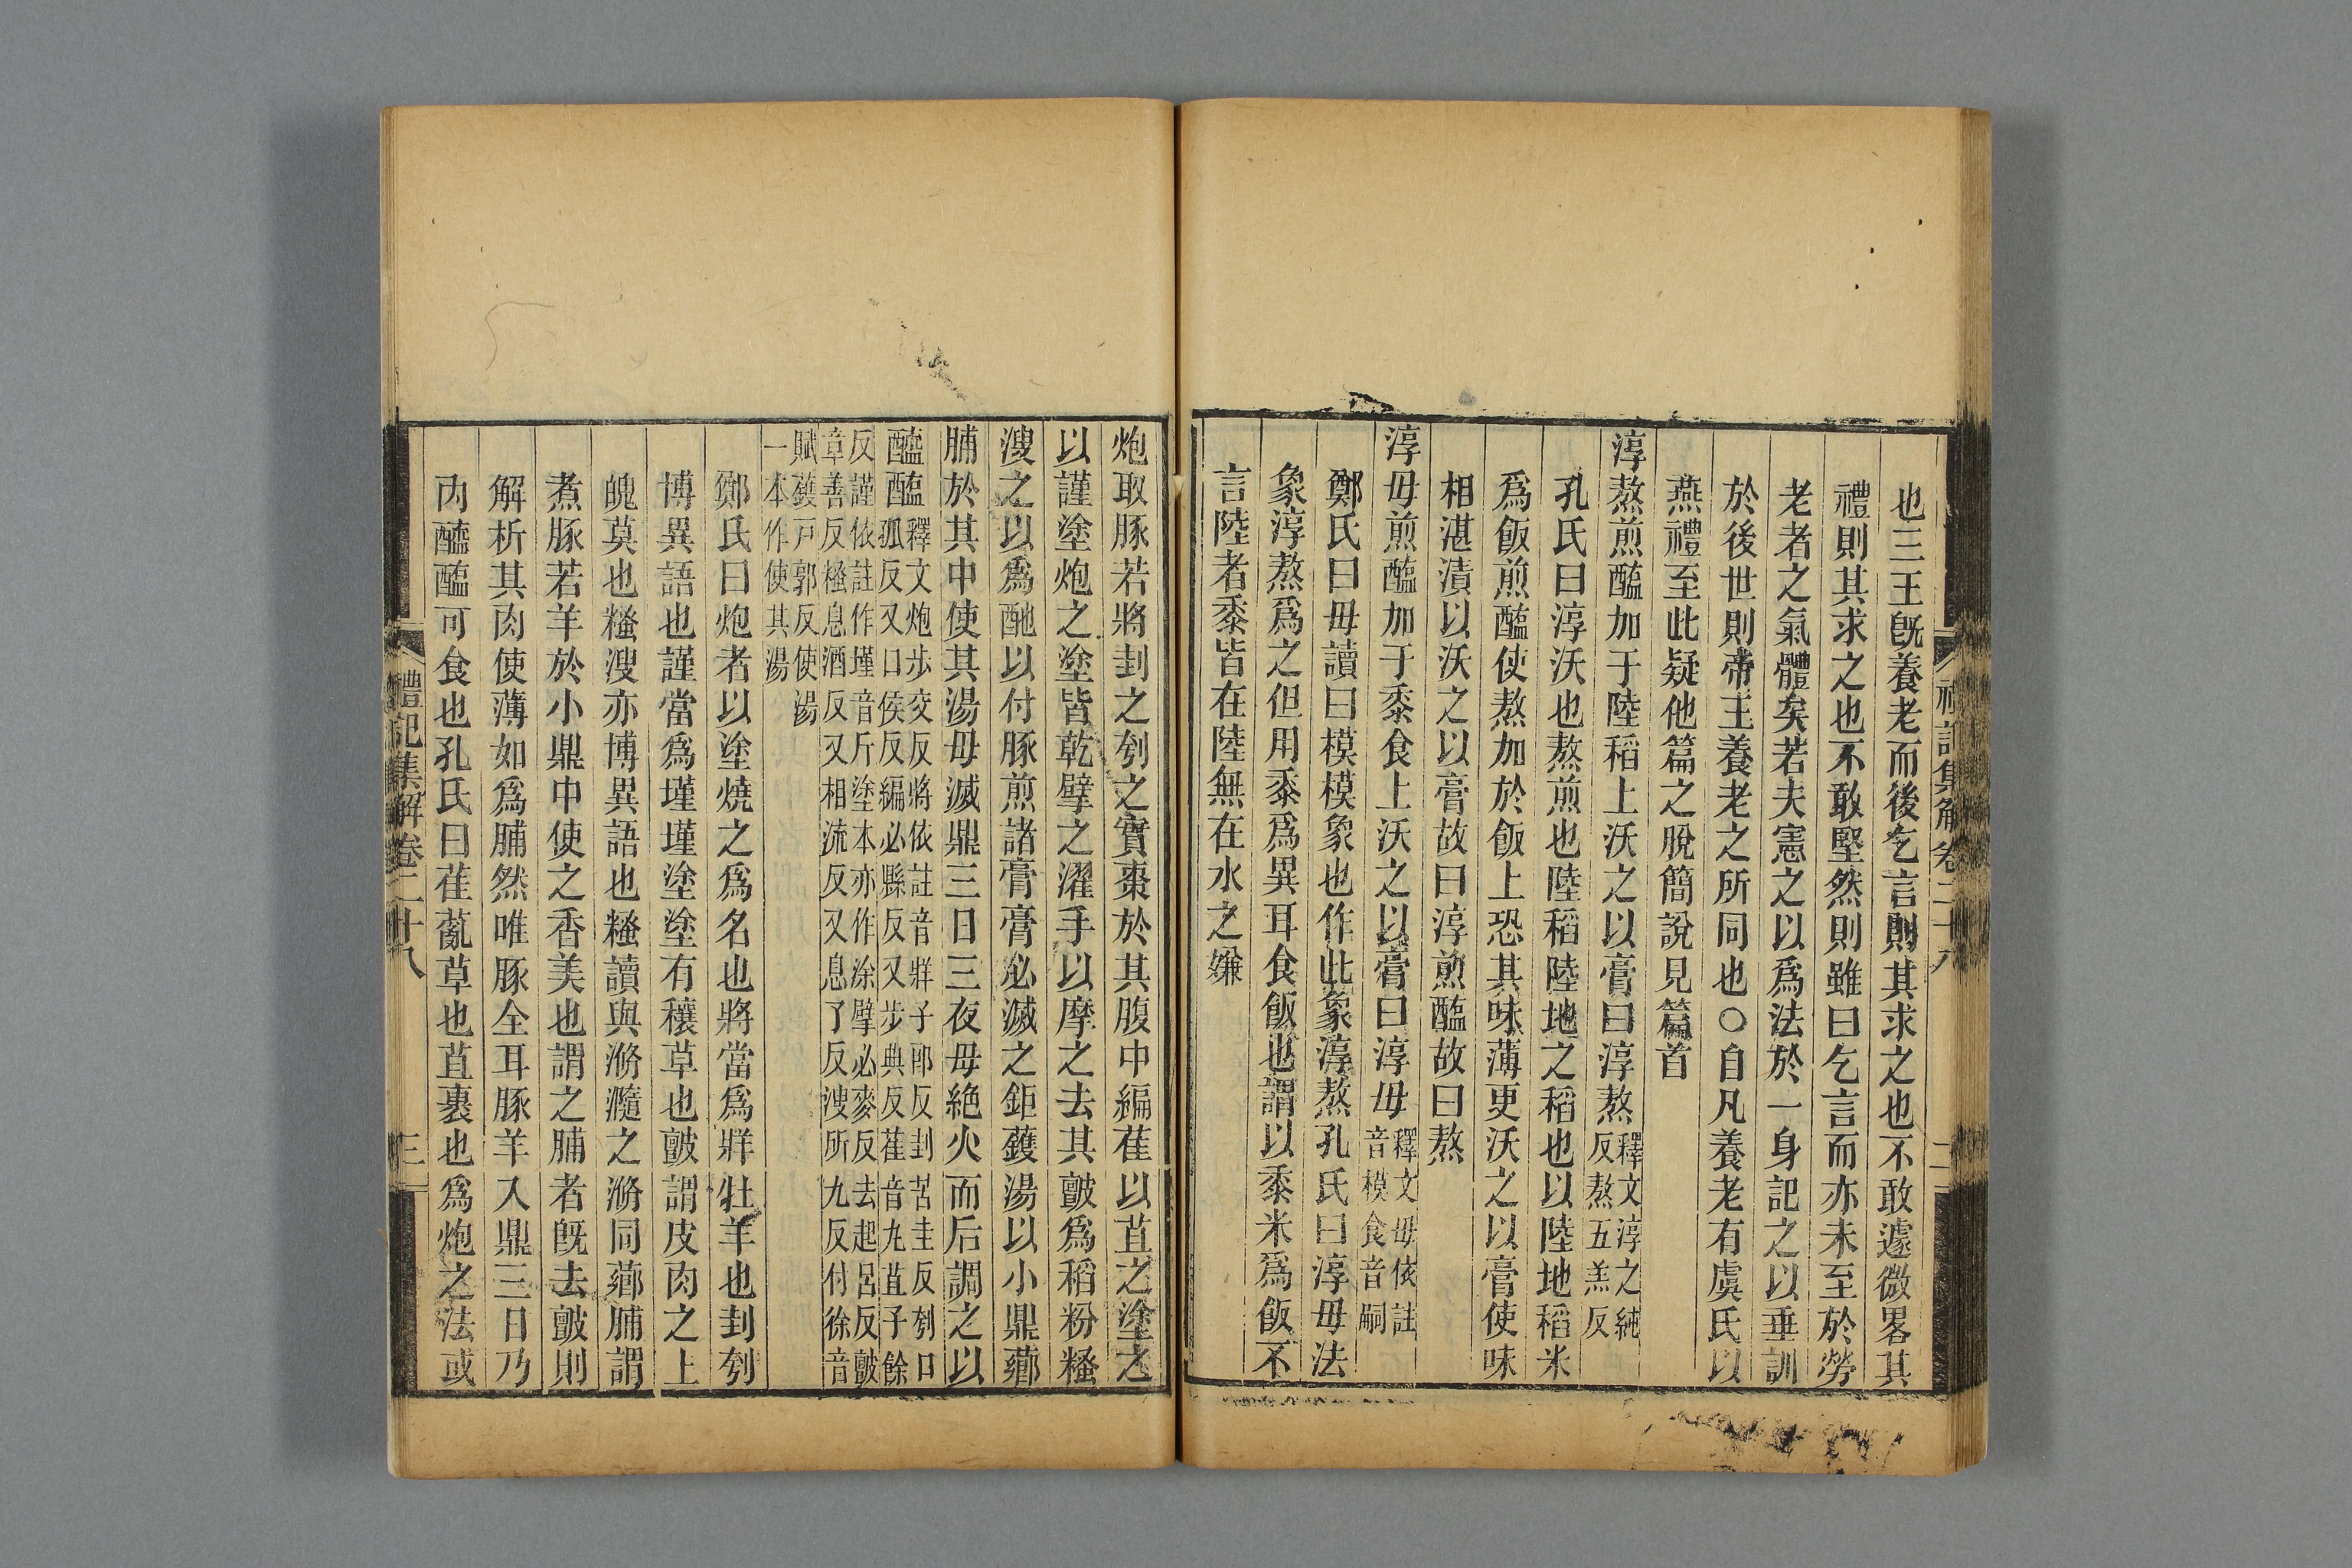 也三王旣養老而後乞言則其求之也不敢遽微畧其
禮則其求之也不敢堅然則雖曰乞言而亦未至於勞
老者之氣體矣若夫憲之以爲法於一身記之以垂訓
於後世則帝王養老之所同也○自凡養老有虞氏以
燕禮至此疑他篇之脫簡說見篇首
淳熬煎醢加于陸稻上沃之以膏曰淳熬釋文淳之純反熬五羔反
孔氏曰淳沃也熬煎也陸稻陸地之稻也以陸地稻米
爲飯煎醢使熬加於飯上恐其味薄更沃之以膏使味
相湛漬以沃之以膏故曰淳煎醢故曰熬
淳毋煎醢加于黍食上沃之以膏曰淳毋釋文毋依註音模食音嗣
鄭氏曰毋讀曰模模象也作此象淳熬孔氏曰淳毋法
象淳熬爲之但用黍爲異耳食飯也謂以黍米爲飯不
言陸者黍皆在陸無在水之嫌
炮取豚若將刲之刳之實棗於其腹中編萑以苴之塗之
以謹塗炮之塗皆乾擘之濯手以摩之去其皽爲稻粉糔
溲之以爲酏以付豚煎諸膏膏必滅之鉅鑊湯以小鼎薌
脯於其中使其湯毋滅鼎三日三夜毋絕火而后調之以
醯醢釋文炮步交反將依註音牂子郎反刲苦圭反刳口孤反又口侯反編必縣反又步典反萑音丸苴子餘
反謹依註作墐音斤塗本亦作涂擘必麥反去起呂反皽章善反糔息酒反又相流反又息了反溲所九反付徐音
賦鑊戸郭反使湯一本作使其湯
鄭氏曰炮者以塗燒之爲名也將當爲牂牡羊也刲刳
博異語也謹當爲墐墐塗塗有穰草也皽謂皮肉之上
魄莫也糔溲亦博異語也糔讀與滫瀡之滫同薌脯謂
煮豚若羊於小鼎中使之香美也謂之脯者旣去皽則
解析其肉使薄如爲脯然唯豚全耳豚羊入鼎三日乃
內醯醢可食也孔氏曰萑薍草也苴裹也爲炮之法或
禮記集解卷二十八
三